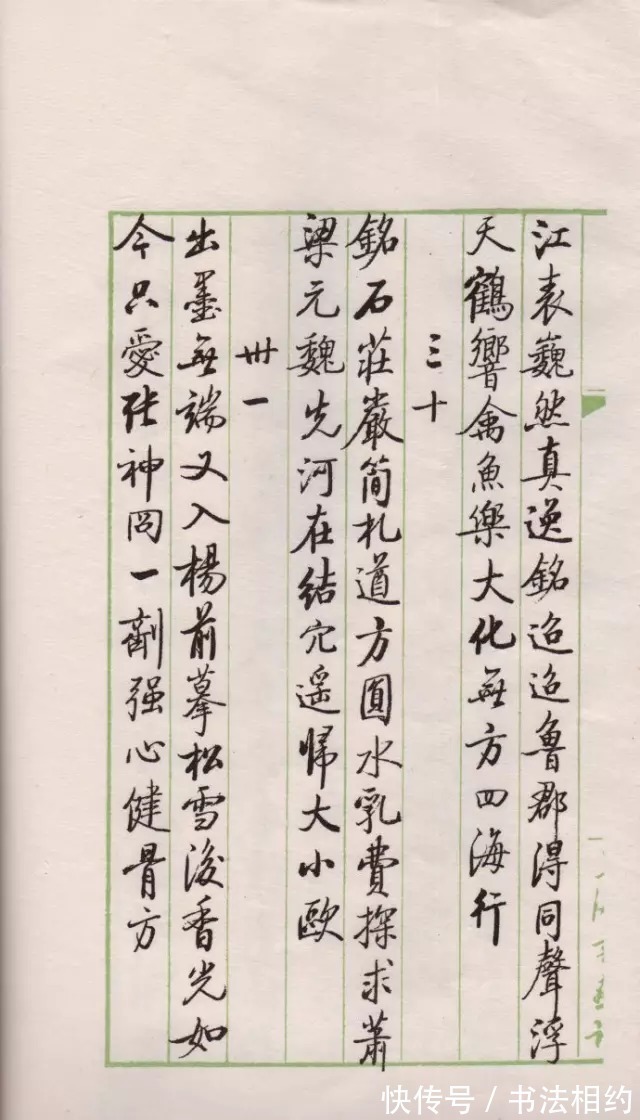 江表巍然真逸銘迢迢魯郡得同聲浮
天鶴響禽魚樂大化無方四海行
三十
銘石莊嚴简札道方圓水乳費探求蕭
梁元魏先河在結穴遥歸大小歐
卅一
出墨無端又入楊前摹松雪後香光如
今只愛張神冏一劑强心健骨方
快传号/书法相约